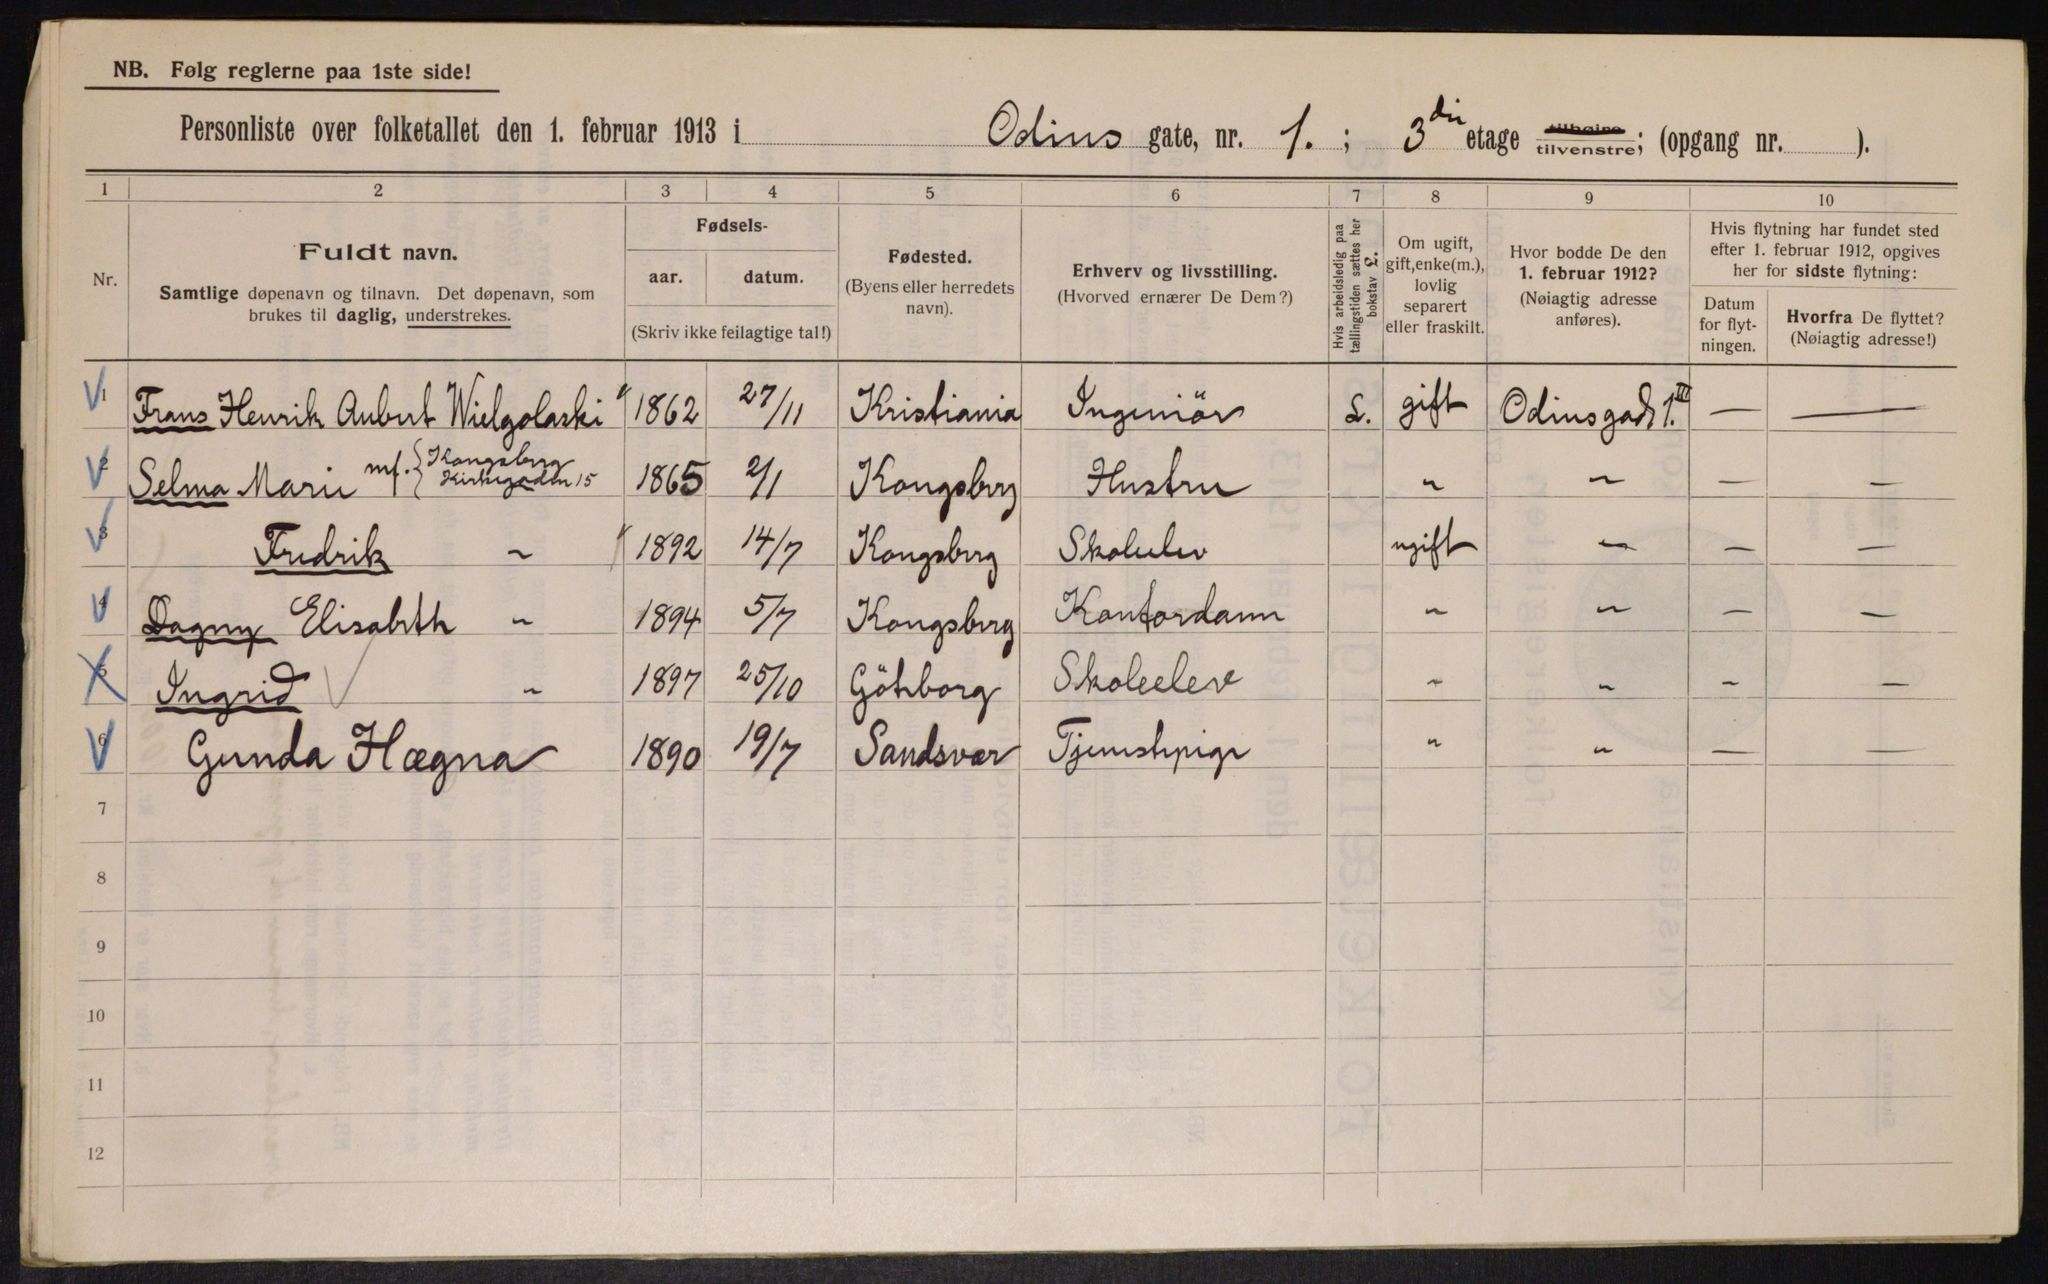 NB. Følg reglerne paa 1ste side!
Personliste over folketallet den 1. februar 1913 i Odins gate, nr. 1. ; 3die etage tilhøire tilvenstre; (opgang nr. ).
1 2 3 4 5 6 7 8 9 10
Nr.
Fuldt navn.
Samtlige døpenavn og tilnavn. Det døpenavn, som
brukes til daglig, understrekes.
Fødsels-
aar. datum.
(Skriv ikke feilagtige tal!)
Fødested.
(Byens eller herredets
navn).
Erhverv og livsstilling.
(Hvorved ernærer De Dem?)
Hvis arbeidsledig paa
tællingstiden sættes her
bokstav L.
Om ugift,
gift, enke(m.),
lovlig
separert
eller fraskilt.
Hvor bodde De den
1. februar 1912?
(Nøiagtig adresse
anføres).
Hvis flytning har fundet sted
efter 1. februar 1912, opgives
her for sidste flytning:
Datum
for flyt-
ningen.
Hvorfra De flyttet?
(Nøiagtig adresse!)
1 Frans Henrik Aubert Wielgolaski 1862 27/11 Kristiania Ingeniör L. gift Odinsgade 1.III — —
2 Selma Marie mf. { Kongsberg
Kirkegaden 15 1865 2/1 Kongsberg Hustru " " — —
3 Fredrik " 1892 14/7 Kongsberg Skoleelev ugift " — —
4 Dagny Elisabeth " 1894 5/7 Kongsberg Kontordame " " — —
5 Ingrid " 1897 25/10 Göteborg Skoleelev " " — —
6 Gunda Hægna 1890 19/7 Sandsvær Tjenestepige " " — —
7
8
9
10
11
12